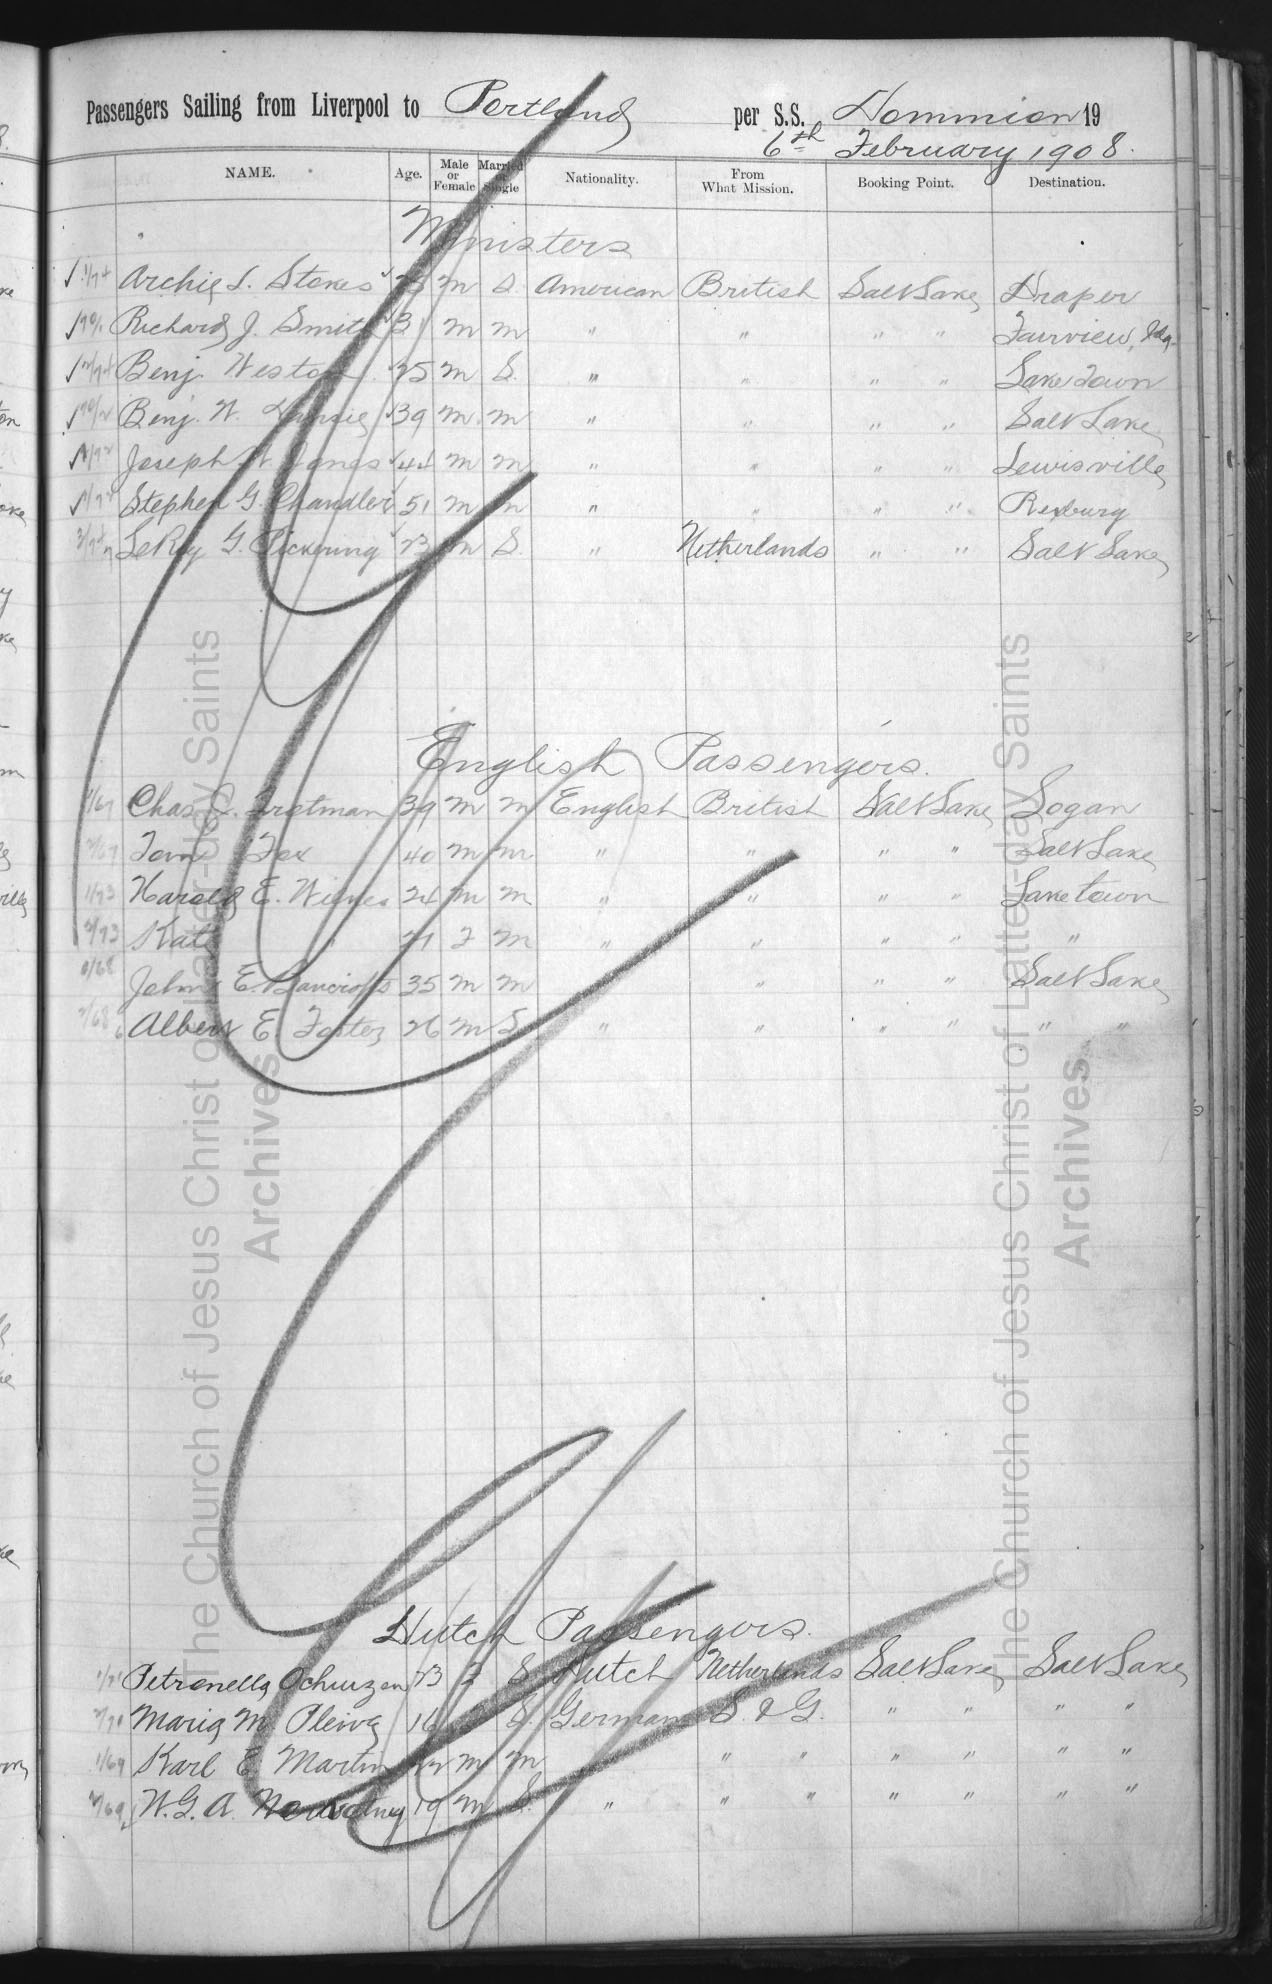 Passengers Sailing from Liverpool to Portland per S.S. Dominion 19
6th February 1908.
NAME. Age. Male or Female Married or Single Nationality. From What Mission. Booking Point. Destination.
Ministers
Archie L. Stokes M S. American British Salt Lake Draper
Richard J. Smith 31 M M " " " " Fairview, Ida.
Benj. Weston 25 M S. " " " " Lake Town
Benj. W. 39 M M " " " " Salt Lake
Joseph W. Jones 44 M M " " " " Lewisville
Stephen G. Chandler 51 M M " " " " Rexburg
LeRoy G. Pickering 23 M S. " Netherlands " " Salt Lake
English Passengers.
Chas. Trotman 39 M M English British Salt Lake Logan
Tom Fox 40 M M " " " " Salt Lake
Harold E. 24 M M " " " " Laketown
Kate " 21 F M " " " " "
John E. Bancroft 35 M M " " " Salt Lake
Albert E. Foster 26 M S " " " " " "
Dutch Passengers.
Petronella 23 F S Dutch Netherlands Salt Lake Salt Lake
Maria M. 16 S. German S. & G. " " " "
Karl E. Martin 22 M M " " " " " "
W. G. A. 19 M S. " " " " " " "
The Church of Jesus Christ of Latter-day Saints
Archives
The Church of Jesus Christ of Latter-day Saints
Archives